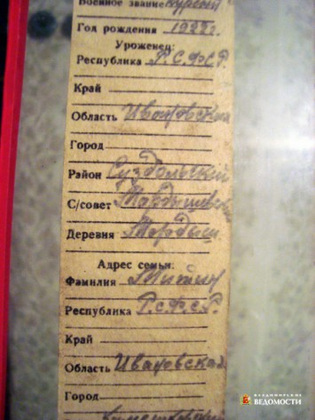 Военное звание Курсант
Год рождения 1922 г.
Уроженец:
Республика Р.С.Ф.С.Р.
Край
Область Ивановская
Город
Район Суздальский
С/совет Мордышский
Деревня Мордыш
Адрес семьи:
Фамилия
Республика Р.С.Ф.С.Р.
Край
Область Ивановская
Город
ВЛАДИМИРСКИЕ
ВЕДОМОСТИ